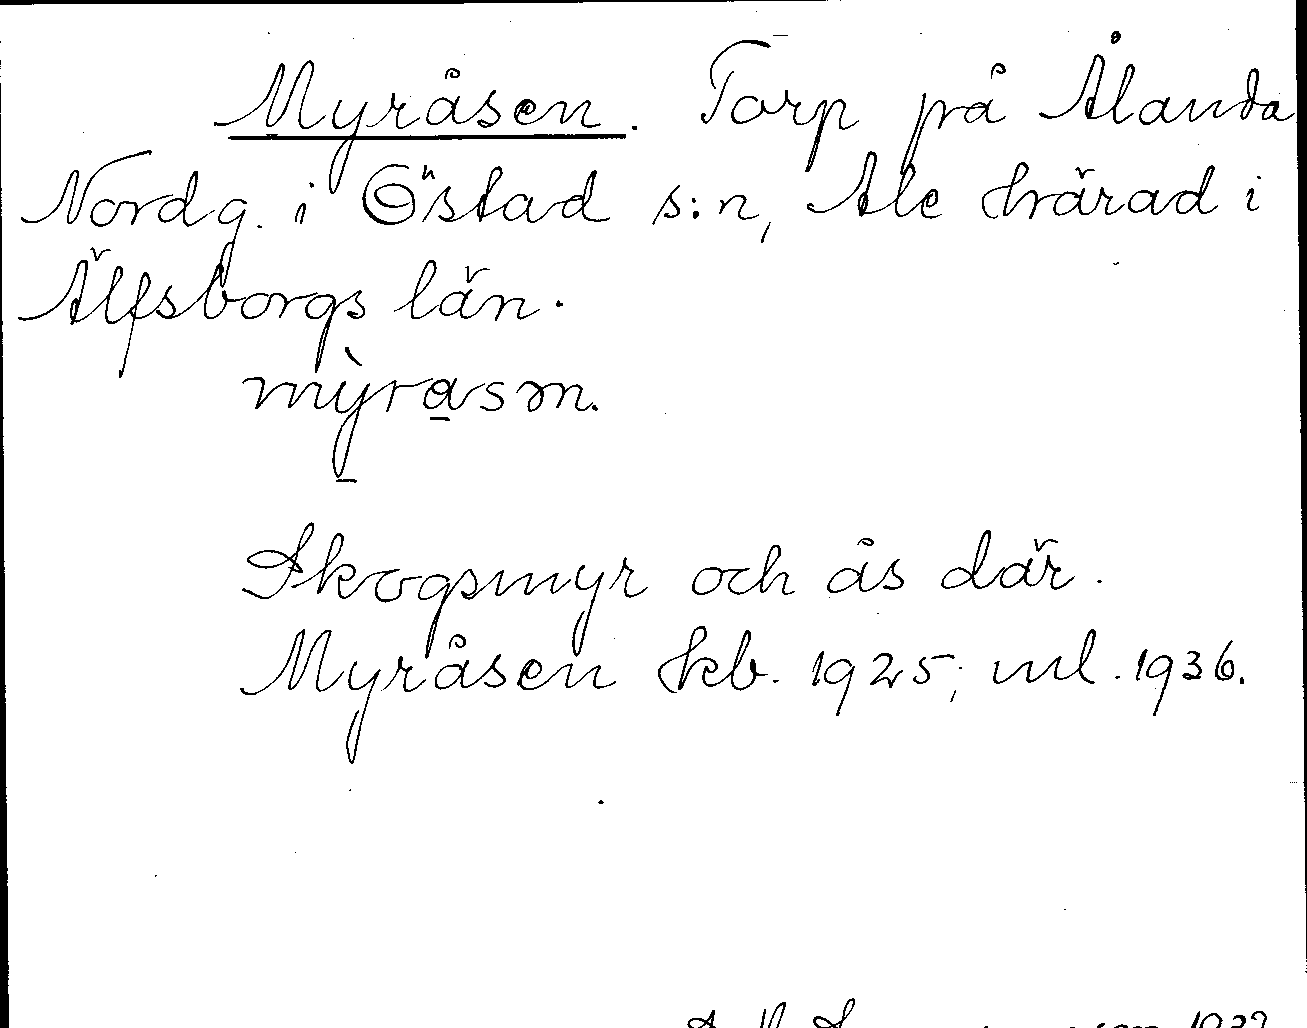 Myråsen. Torp på Ålanda
Nordg. i Östad s:n, Ale härad i
Älfsborgs län.
mỳ̱ra̱sәn.
Skogsmyr och ås där.
Myråsen kb. 1925; ml. 1936.